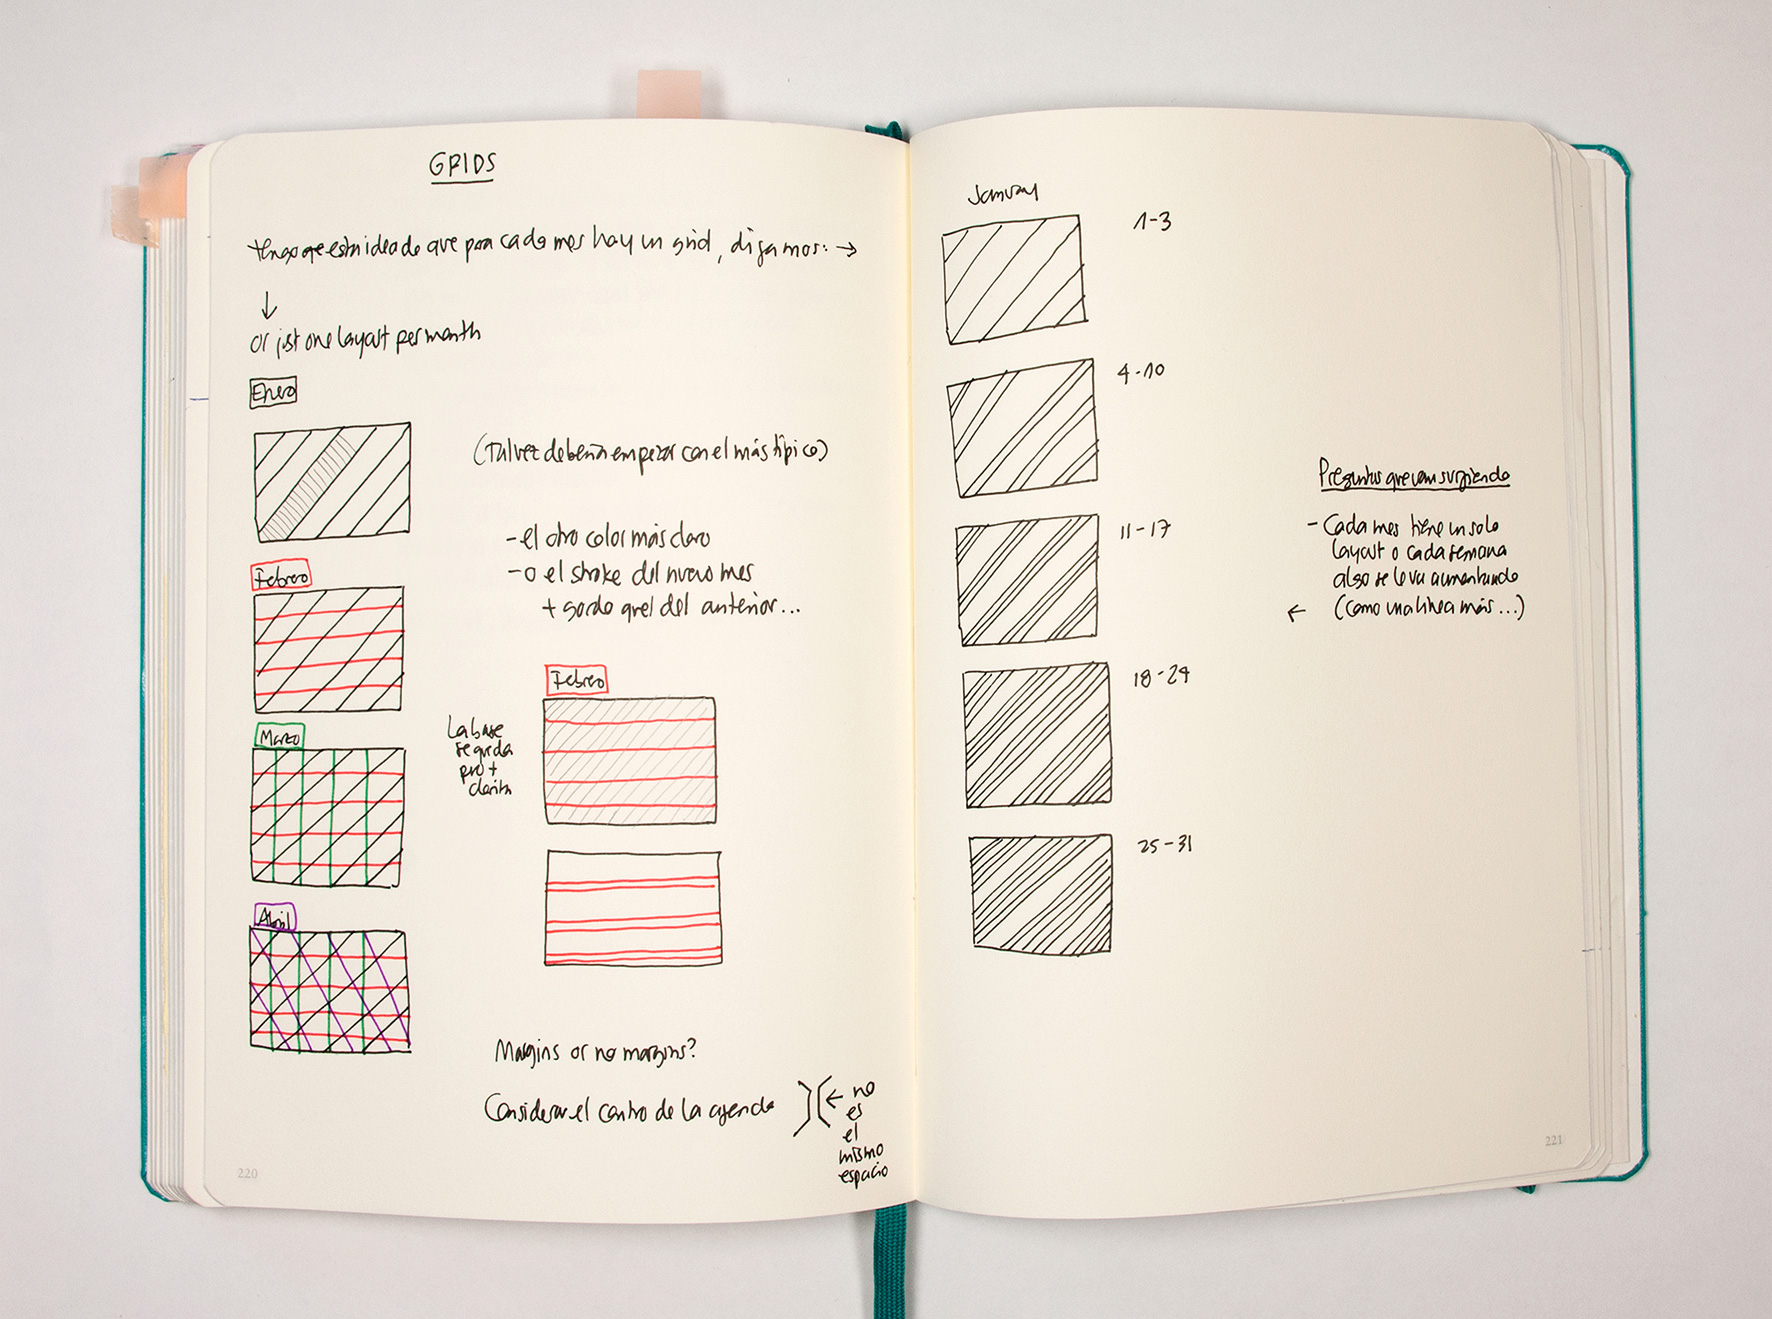 GRIDS
tengo que esta idea de que para cada mes hay un grid, digamos: →
↓
or just one layout per month
Enero
(Tal vez debería empezar con el más típico)
- el otro color más claro
- o el stroke del nuevo mes
+ gordo q' el del anterior...
Febrero
Marzo
Abril
Febrero
La base
segunda
pero +
clarita
Margins or no margins?
Considerar el centro de la agenda
← no
es
el
mismo
espacio
220
January
1-3
4-10
11-17
18-24
25-31
Preguntas que van surgiendo
- Cada mes tiene un solo
layout o cada semana
algo se le va aumentando
← (como una línea más...)
221